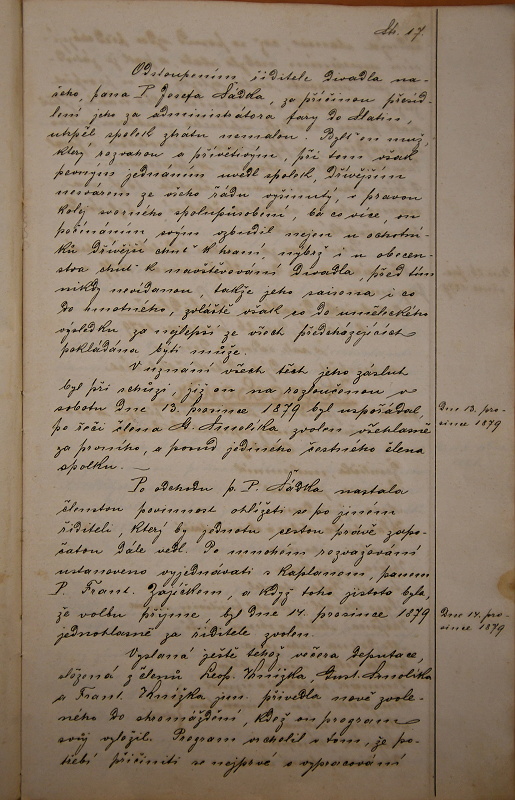 Str. 17.
Odstoupením řiditele divadla na-
šeho, pana P. Josefa Sádka, za příčinou přesíd-
lení jeho za administrátora fary do Slatin,
utrpěl spolek ztrátu nemalou. Bylť on muž,
který rozvahou a přívětivým, při tom však
pevným jednáním uvedl spolek, dřívějším
nesvárem ze všeho řádu vyšinutý, v pravou
kolej svorného spolupůsobení, ba co více, on
počínáním svým vzbudil nejen u ochotní-
ků dřívější chuť k hraní, nýbrž i u obecen-
stva chuť k navštěvování divadla, před tím
nikdy nevídanou, takže jeho saisona i co
do hmotného, zvláště však co do uměleckého
výsledku za nejlepší ze všech předcházejících
pokládána býti může.
V uznání všech těch jeho zásluh
byl při schůzi, již on na rozloučenou v
sobotu dne 13. prosince 1879 byl uspořádal,
po řeči člena G. Smolíka zvolen všehlasně
za prvního, a posud jediného čestného člena
spolku. —
Dne 13. pro-
since 1879
Po odchodu p. P. Sádka nastala
členstvu povinnost ohlížeti se po jiném
řiditeli, který by jednotu cestou právě zapo-
čatou dále vedl. Po mnohém rozvažování
ustanoveno vyjednávati s kaplanem, panem
P. Frant. Zajíčkem, a když toho jistota byla,
že volbu přijme, byl dne 14. prosince 1879
jednohlasně za řiditele zvolen.
Dne 14. pro-
since 1879
Vyslaná ještě téhož večera deputace,
složená z členů Leop. Knížka, Gust. Smolíka
a Frant. Knížka jun. přivedla nově zvole-
ného do shromáždění, kdež on program
svůj vyložil. Program vrcholil v tom, že po-
třebí přičiniti se nejprvé o vypracování